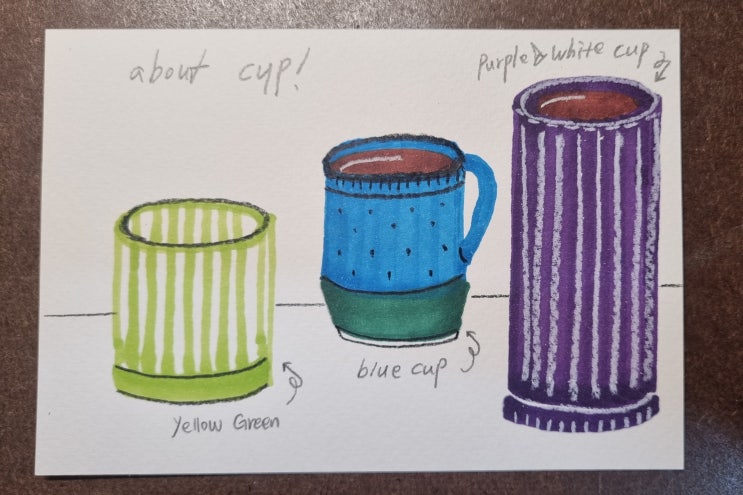 about cup!
Purple & white cup
blue cup
Yellow Green